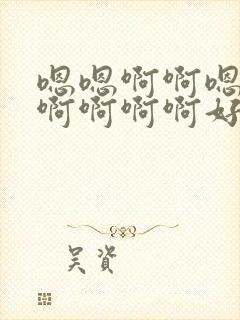 嗯嗯啊啊嗯
啊啊啊啊好
吴资